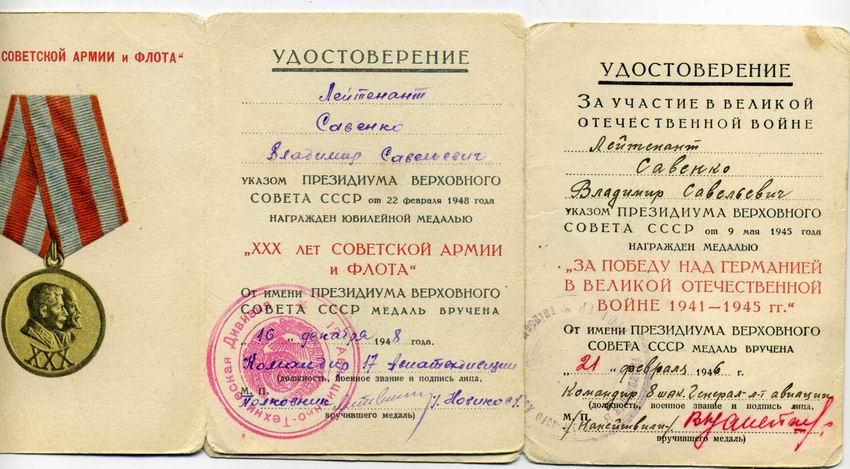 СОВЕТСКОЙ АРМИИ и ФЛОТА"
XXX
УДОСТОВЕРЕНИЕ
Лейтенант
Савенко
Владимир Савельевич
УКАЗОМ ПРЕЗИДИУМА ВЕРХОВНОГО
СОВЕТА СССР от 22 февраля 1948 года
НАГРАЖДЕН ЮБИЛЕЙНОЙ МЕДАЛЬЮ
„XXX ЛЕТ СОВЕТСКОЙ АРМИИ
и ФЛОТА"
От ИМЕНИ ПРЕЗИДИУМА ВЕРХОВНОГО
СОВЕТА СССР МЕДАЛЬ ВРУЧЕНА
„16" декабря 1948 года.
Командир 17 Авиатехдивизии
(должность, военное звание и подпись лица,
М. П.
Полковник /Носиков/
вручившего медаль)
Авиационно-Техническая Дивизия
УДОСТОВЕРЕНИЕ
ЗА УЧАСТИЕ В ВЕЛИКОЙ
ОТЕЧЕСТВЕННОЙ ВОЙНЕ
Лейтенант
Савенко
Владимир Савельевич
УКАЗОМ ПРЕЗИДИУМА ВЕРХОВНОГО
СОВЕТА СССР от 9 мая 1945 года
НАГРАЖДЕН МЕДАЛЬЮ
„ЗА ПОБЕДУ НАД ГЕРМАНИЕЙ
В ВЕЛИКОЙ ОТЕЧЕСТВЕННОЙ
ВОЙНЕ 1941—1945 гг."
От ИМЕНИ ПРЕЗИДИУМА ВЕРХОВНОГО
СОВЕТА СССР МЕДАЛЬ ВРУЧЕНА
„21" февраля 1946 г.
Командир 8 шак. Генерал-л-т авиации
(должность, военное звание и подпись лица,
М. П.
/Нанейшвили/
вручившего медаль)